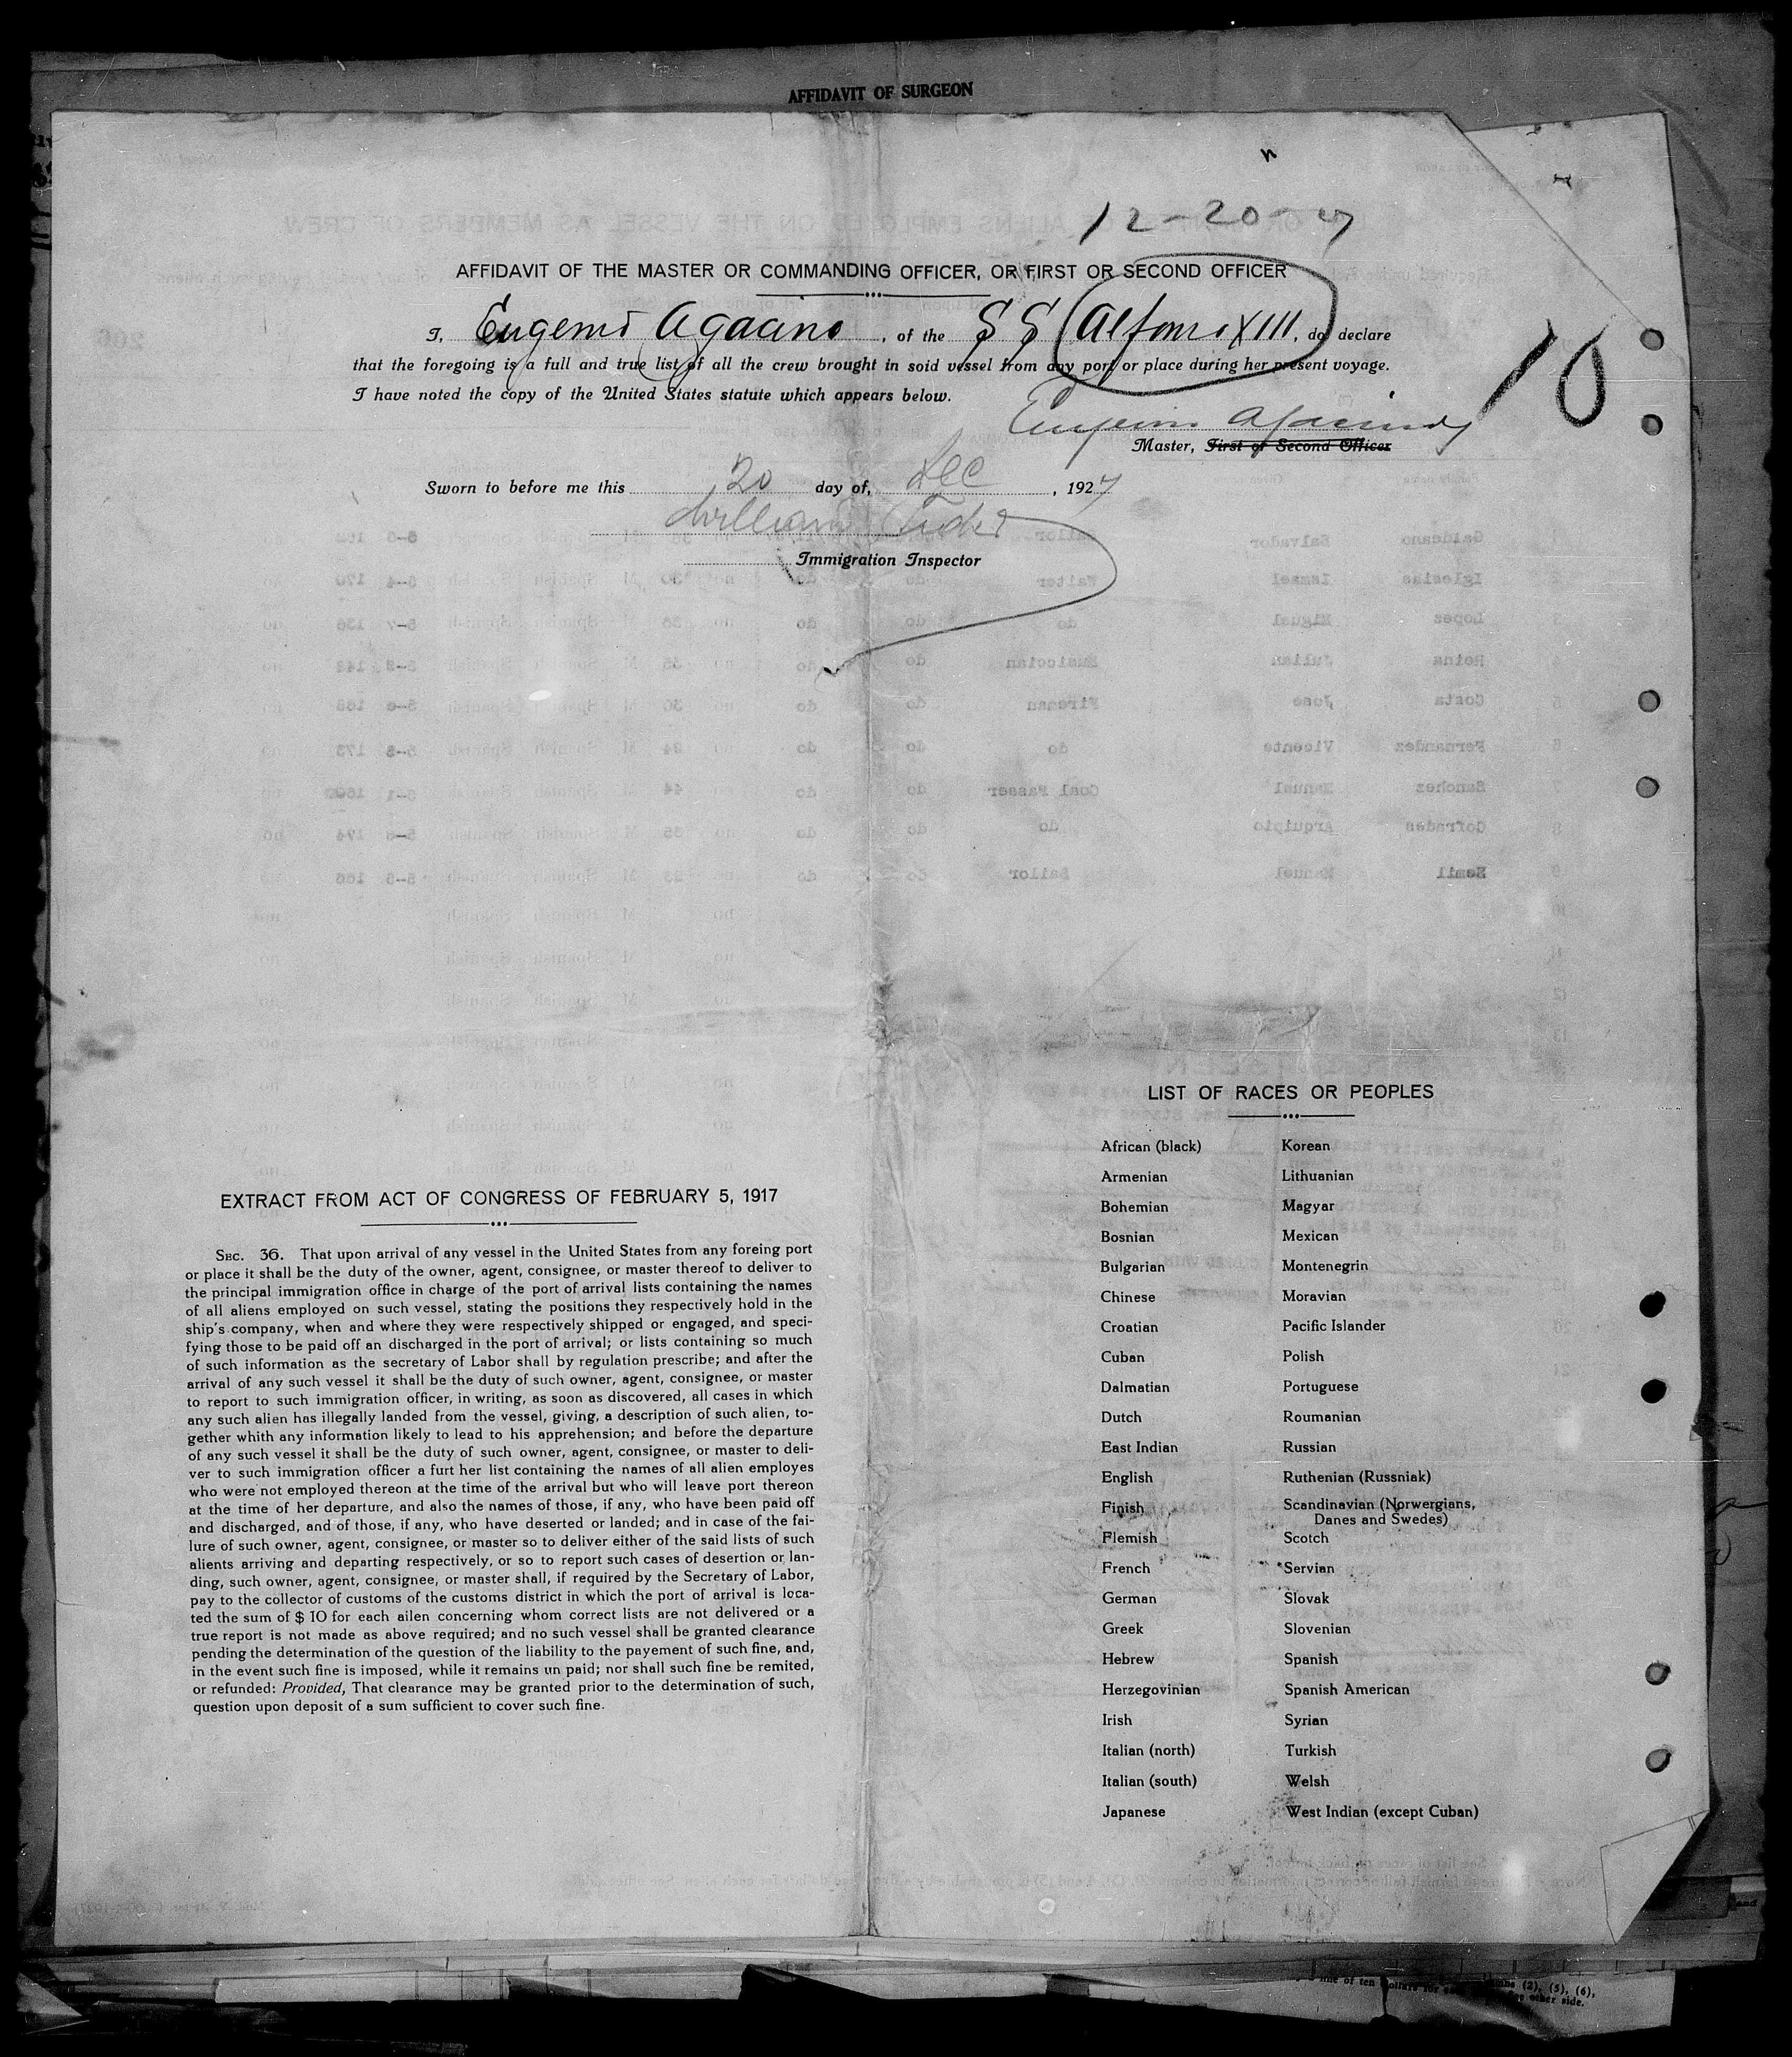 AFFIDAVIT OF SURGEON
12-20-27
AFFIDAVIT OF THE MASTER OR COMMANDING OFFICER, OR FIRST OR SECOND OFFICER
I, Eugenio Agacino, of the SS Alfonso XIII, do declare
that the foregoing is a full and true list of all the crew brought in soid vessel from any port or place during her present voyage.
I have noted the copy of the United States statute which appears below.
10
Eugenio Agacino
Master, First or Second Officer
Sworn to before me this 20 day of, Dec, 1927
William
Immigration Inspector
EXTRACT FROM ACT OF CONGRESS OF FEBRUARY 5, 1917
SEC. 36. That upon arrival of any vessel in the United States from any foreing port
or place it shall be the duty of the owner, agent, consignee, or master thereof to deliver to
the principal immigration office in charge of the port of arrival lists containing the names
of all aliens employed on such vessel, stating the positions they respectively hold in the
ship's company, when and where they were respectively shipped or engaged, and speci-
fying those to be paid off an discharged in the port of arrival; or lists containing so much
of such information as the secretary of Labor shall by regulation prescribe; and after the
arrival of any such vessel it shall be the duty of such owner, agent, consignee, or master
to report to such immigration officer, in writing, as soon as discovered, all cases in which
any such alien has illegally landed from the vessel, giving, a description of such alien, to-
gether whith any information likely to lead to his apprehension; and before the departure
of any such vessel it shall be the duty of such owner, agent, consignee, or master to deli-
ver to such immigration officer a furt her list containing the names of all alien employes
who were not employed thereon at the time of the arrival but who will leave port thereon
at the time of her departure, and also the names of those, if any, who have been paid off
and discharged, and of those, if any, who have deserted or landed; and in case of the fai-
lure of such owner, agent, consignee, or master so to deliver either of the said lists of such
alients arriving and departing respectively, or so to report such cases of desertion or lan-
ding, such owner, agent, consignee, or master shall, if required by the Secretary of Labor,
pay to the collector of customs of the customs district in which the port of arrival is loca-
ted the sum of $ 10 for each ailen concerning whom correct lists are not delivered or a
true report is not made as above required; and no such vessel shall be granted clearance
pending the determination of the question of the liability to the payement of such fine, and,
in the event such fine is imposed, while it remains un paid; nor shall such fine be remited,
or refunded: Provided, That clearance may be granted prior to the determination of such,
question upon deposit of a sum sufficient to cover such fine.
LIST OF RACES OR PEOPLES
African (black) Korean
Armenian Lithuanian
Bohemian Magyar
Bosnian Mexican
Bulgarian Montenegrin
Chinese Moravian
Croatian Pacific Islander
Cuban Polish
Dalmatian Portuguese
Dutch Roumanian
East Indian Russian
English Ruthenian (Russniak)
Finish Scandinavian (Norwergians,
Danes and Swedes)
Flemish Scotch
French Servian
German Slovak
Greek Slovenian
Hebrew Spanish
Herzegovinian Spanish American
Irish Syrian
Italian (north) Turkish
Italian (south) Welsh
Japanese West Indian (except Cuban)